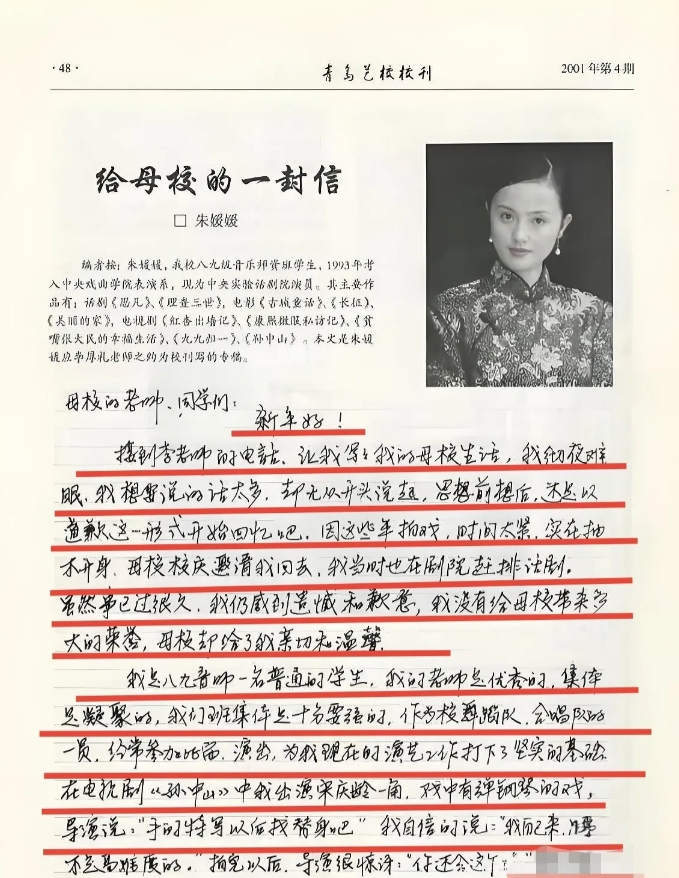 ·48·
青岛艺校校刊
2001年第4期
给母校的一封信
□ 朱媛媛
编者按：朱媛媛，我校八九级音乐师资班学生，1993年考
入中央戏曲学院表演系，现为中央实验话剧院演员。其主要作
品有：话剧《思凡》、《理查三世》，电影《古城童话》、《长征》、
《美丽的家》，电视剧《红杏出墙记》、《康熙微服私访记》、《贫
嘴张大民的幸福生活》、《九九归一》、《孙中山》。本文是朱媛
媛应李厚礼老师之约为校刊写的专稿。
母校的老师、同学们：
新年好！
接到李老师的电话，让我写写我的母校生活，我彻夜难
眠，我想要说的话太多，却无从开头说起，思想前想后，还是以
道歉这一形式开始回忆吧，因这些年拍戏，时间太紧，实在抽
不开身，母校校庆邀请我回去，我当时也在剧院赶排话剧。
虽然事已过很久，我仍感到遗憾和歉意，我没有给母校带来多
大的荣誉，母校却给了我亲切和温馨。
我是八九音师一名普通的学生，我的老师是优秀的，集体
是凝聚的，我们班集体是十分要强的，作为校舞蹈队、合唱队的
一员，经常参加比赛、演出，为我现在的演艺工作打下了坚实的基础
在电视剧《孙中山》中我出演宋庆龄一角，戏中有弹钢琴的戏，
导演说："手的特写以后找替身吧" 我自信的说："我自己来，
不是高难度的。"拍完以后，导演很惊讶："你还会这个？"